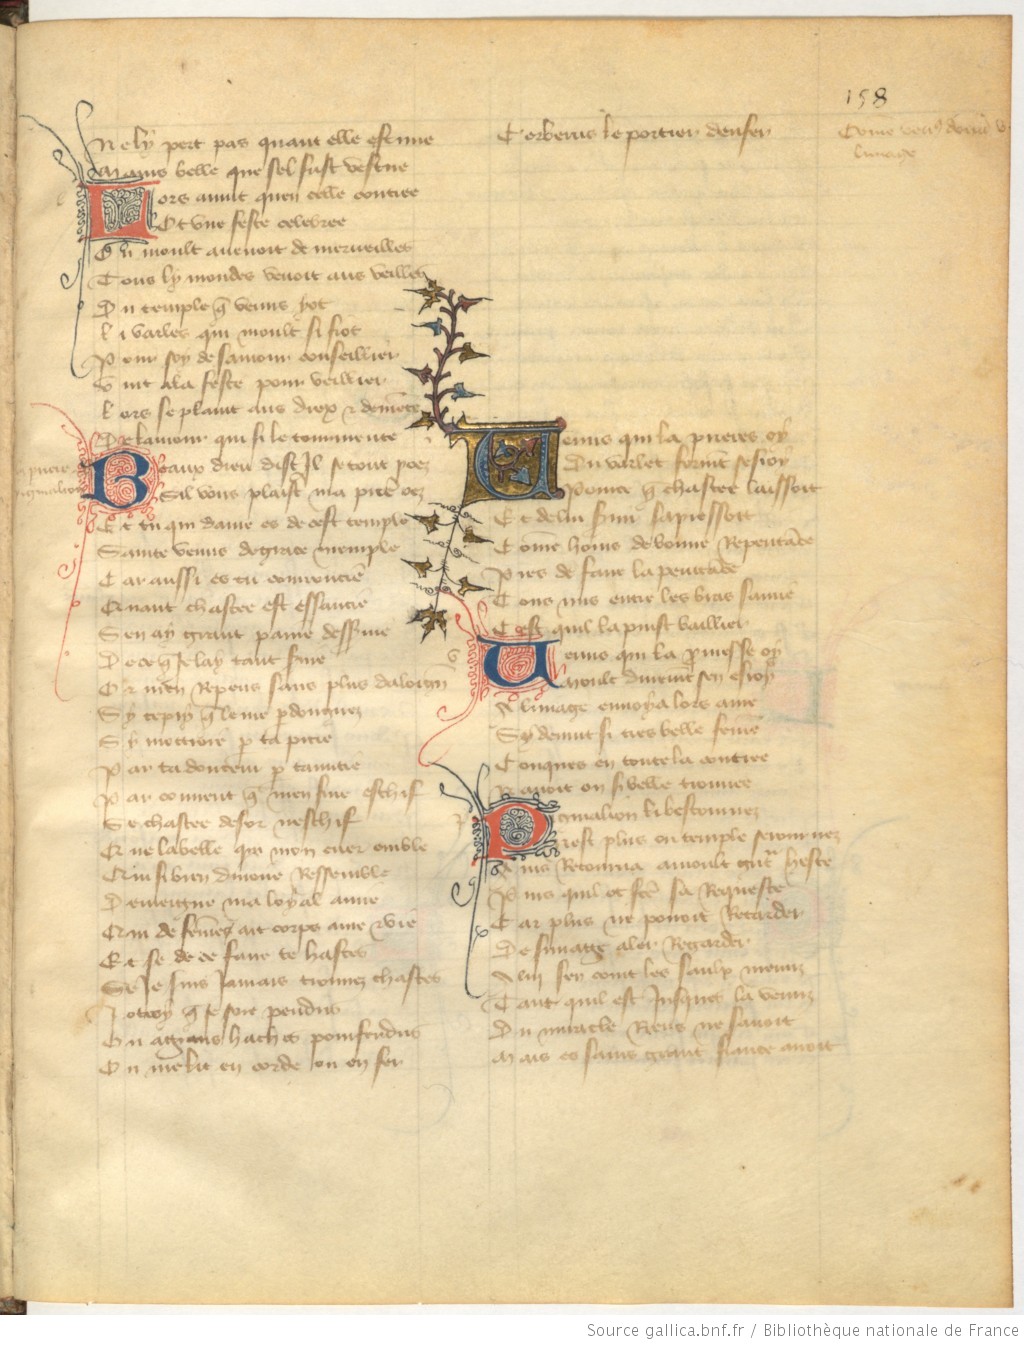 158
Ne ly pert pas quant elle est nue
Mains belle que sel fust vestue
Lors avint quen celle contree
Ot une feste celebree
Ou moult avenoit de merveilles
Tous ly mondes venoit aus veilles
Du temple q̄ venus yot
Li varles qui moult si fiot
Pour soy de samour conseillier
Vint ala feste pour veillier
Lors se plaint aus diex ⁊ demēte
De lamour qui si le tourmente
Beaux dieu dist Il se tout poez
Sil vous plaist ma priē oez
Et tu qui dame es de cest temple
Sainte venus de grace memple
Car aussi es tu courrouciē
Quant chastee est essauciē
Sen ay grant paine desservie
De ce q̄ Je lay tant servie
Or men Repens sans plus daloign
Sy te pry q̄ le me pdonnez
Sy mottroie p ta pitie
Par ta doulceur p tamitie
Par convent q̄ men fuie eschif
Se chastee desor neschif
Que la belle qui mon cuer emble
Qui si bien divoire Ressemble
Deviengne ma loyal amie
Qui de fēme ait corps ame ⁊ vie
Et se de ce faire te hastes
Se Je suis Jamais trouvez chastes
Jotroy q̄ Je soie pendus
Ou a grans haches pourfendus
Ou me lit en corde ou en fer
Cerberus le portier denfer
Come venus donna
limage
la priere
pymalion
Venus qui la priere oy
Du varlet forment sesjoy
Pource q̄ chastee laissoit
Et de lui servir sapressoit
Come homs de bonne Repentāce
Pres de faire la penitāce
Tous nus entre les bras samie
Cest quil la puist baillier
Venus qui la pmesse oy
Moult durement sen esjoy
A limage envoya lors ame
Sy devint si tres belle fēme
Conques en toute la contree
Navoit on si belle trouvee
Pymalion li bestournez
Nest plus ou temple sejournez
Ains Retourna a moult grāt heste
Puis quil ot fēt sa Requeste
Car plus ne povoit Retarder
De simage aler Regarder
A luy sen court les saulx menuz
Tant quil est Jusques la venuz
Du miracle Riens ne savoit
Mais es sains grant fiance avoit
Source gallica.bnf.fr / Bibliothèque nationale de France